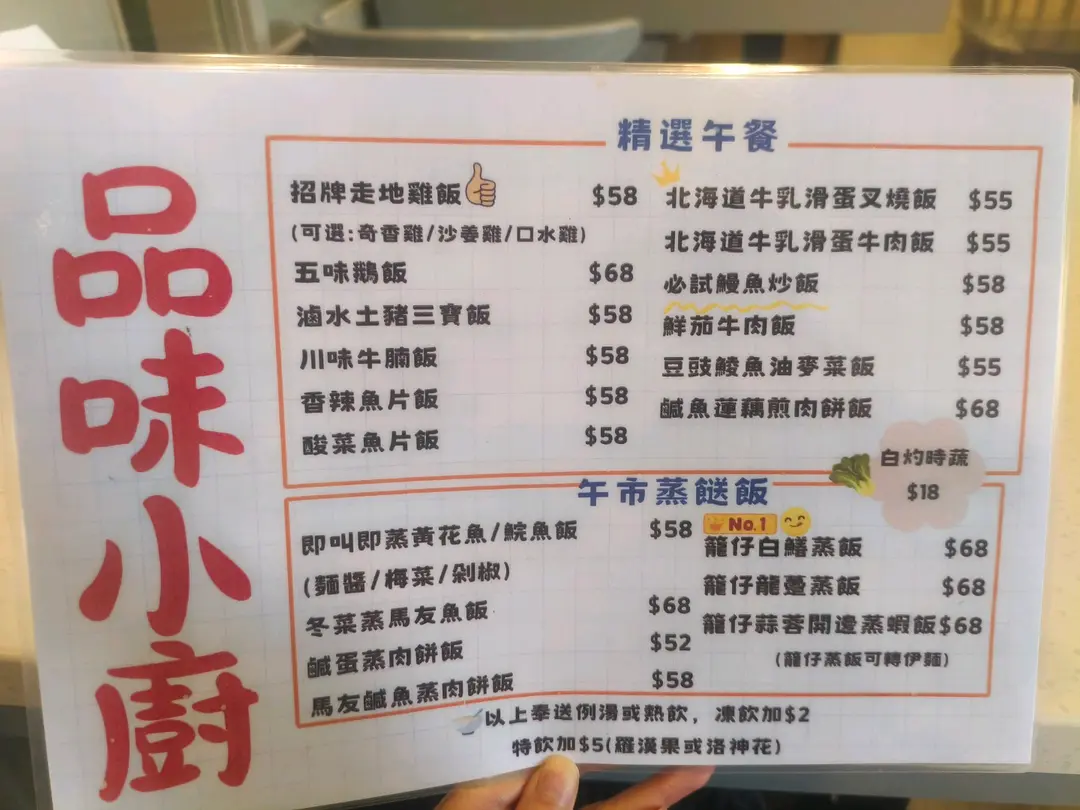 品味小廚
精選午餐
招牌走地雞飯 $58
(可選:奇香雞/沙姜雞/口水雞)
五味鵝飯 $68
滷水土豬三寶飯 $58
川味牛腩飯 $58
香辣魚片飯 $58
酸菜魚片飯 $58
北海道牛乳滑蛋叉燒飯 $55
北海道牛乳滑蛋牛肉飯 $55
必試鰻魚炒飯 $58
鮮茄牛肉飯 $58
豆豉鯪魚油麥菜飯 $55
鹹魚蓮藕煎肉餅飯 $68
白灼時蔬
$18
午市蒸餸飯
即叫即蒸黃花魚/鯇魚飯 $58
(麵醬/梅菜/剁椒)
冬菜蒸馬友魚飯 $68
鹹蛋蒸肉餅飯 $52
馬友鹹魚蒸肉餅飯 $58
No.1
籠仔白鱔蒸飯 $68
籠仔龍躉蒸飯 $68
籠仔蒜蓉開邊蒸蝦飯$68
(籠仔蒸飯可轉伊麵)
以上奉送例湯或熱飲，凍飲加$2
特飲加$5(羅漢果或洛神花)